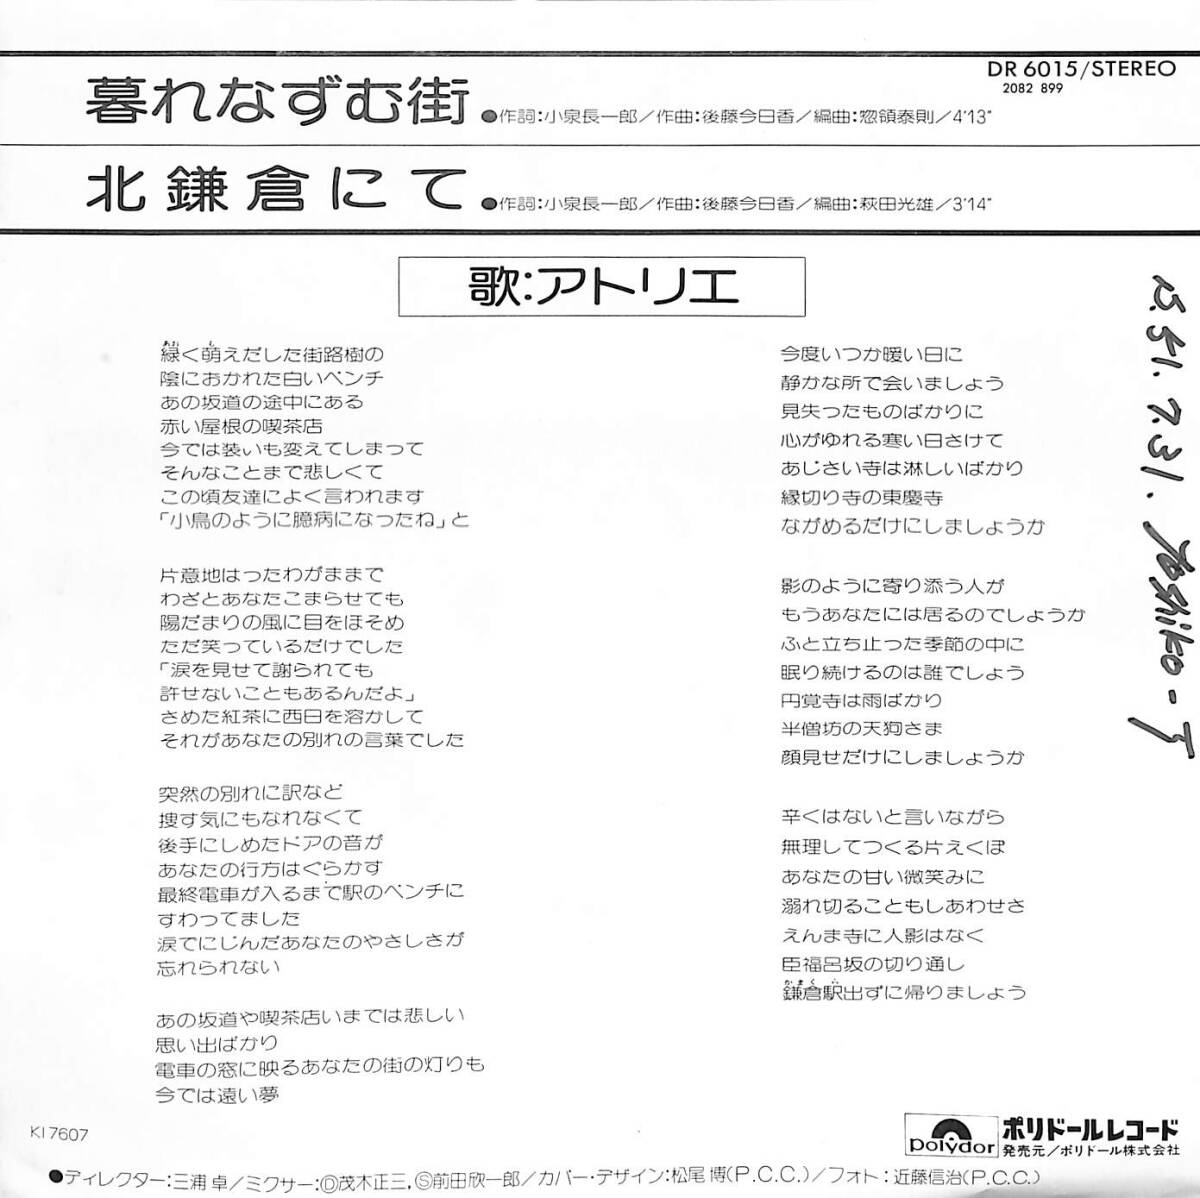 DR 6015/STEREO
2082 899
暮れなずむ街 ●作詞:小泉長一郎/作曲:後藤今日香/編曲:惣領泰則/4'13"
北鎌倉にて ●作詞:小泉長一郎/作曲:後藤今日香/編曲:萩田光雄/3'14"
歌:アトリエ
緑く萌えだした街路樹の
陰におかれた白いベンチ
あの坂道の途中にある
赤い屋根の喫茶店
今では装いも変えてしまって
そんなことまで悲しくて
この頃友達によく言われます
「小鳥のように臆病になったね」と
片意地はったわがままで
わざとあなたこまらせても
陽だまりの風に目をほそめ
ただ笑っているだけでした
「涙を見せて謝られても
許せないこともあるんだよ」
さめた紅茶に西日を溶かして
それがあなたの別れの言葉でした
突然の別れに訳など
捜す気にもなれなくて
後手にしめたドアの音が
あなたの行方はぐらかす
最終電車が入るまで駅のベンチに
すわってました
涙でにじんだあなたのやさしさが
忘れられない
あの坂道や喫茶店いまでは悲しい
思い出ばかり
電車の窓に映るあなたの街の灯りも
今では遠い夢
今度いつか暖い日に
静かな所で会いましょう
見失ったものばかりに
心がゆれる寒い日さけて
あじさい寺は淋しいばかり
縁切り寺の東慶寺
ながめるだけにしましょうか
影のように寄り添う人が
もうあなたには居るのでしょうか
ふと立ち止った季節の中に
眠り続けるのは誰でしょう
円覚寺は雨ばかり
半僧坊の天狗さま
顔見せだけにしましょうか
辛くはないと言いながら
無理してつくる片えくぼ
あなたの甘い微笑みに
溺れ切ることもしあわせさ
えんま寺に人影はなく
臣福呂坂の切り通し
鎌倉駅出ずに帰りましょう
S.51.7.31. Yoshiko-T
KI 7607
polydor ポリドールレコード
発売元/ポリドール株式会社
●ディレクター:三浦 卓/ミクサー:Ⓓ茂木正三,Ⓢ前田欣一郎/カバー・デザイン:松尾 博(P.C.C.)/フォト:近藤信治(P.C.C.)